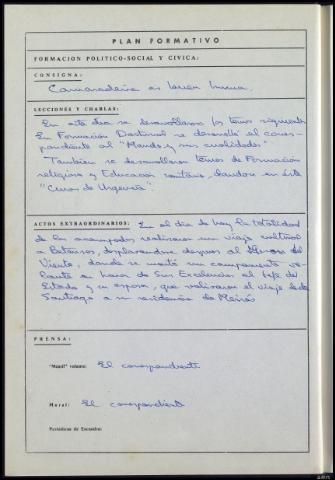 PLAN FORMATIVO
FORMACION POLITICO-SOCIAL Y CIVICA:
CONSIGNA:
Camaradería es buen
LECCIONES Y CHARLAS:
En este día se desarrollaron los temas siguientes
En Formación Doctrinal se desarrolló el corres-
pondiente al "Mando y sus cualidades"
También se desarrollaron temas de Formación
religiosa y Educación sanitaria, dandose en ésta
"Curas de Urgencia".
ACTOS EXTRAORDINARIOS: En el día de hoy la totalidad
de los acampados realizaron un viaje cultural
a Betanzos, desplazandose despues al Mesón del
Viento, donde se montó un campamento vo-
lante en honor de Sus Excelencias el Jefe del
Estado y su esposa, que realizaron el viaje desde
Santiago a su residencia de Meirás
PRENSA:
"Mástil" volante: El correspondiente
Mural: El correspondiente
Periódicos de Escuadra: